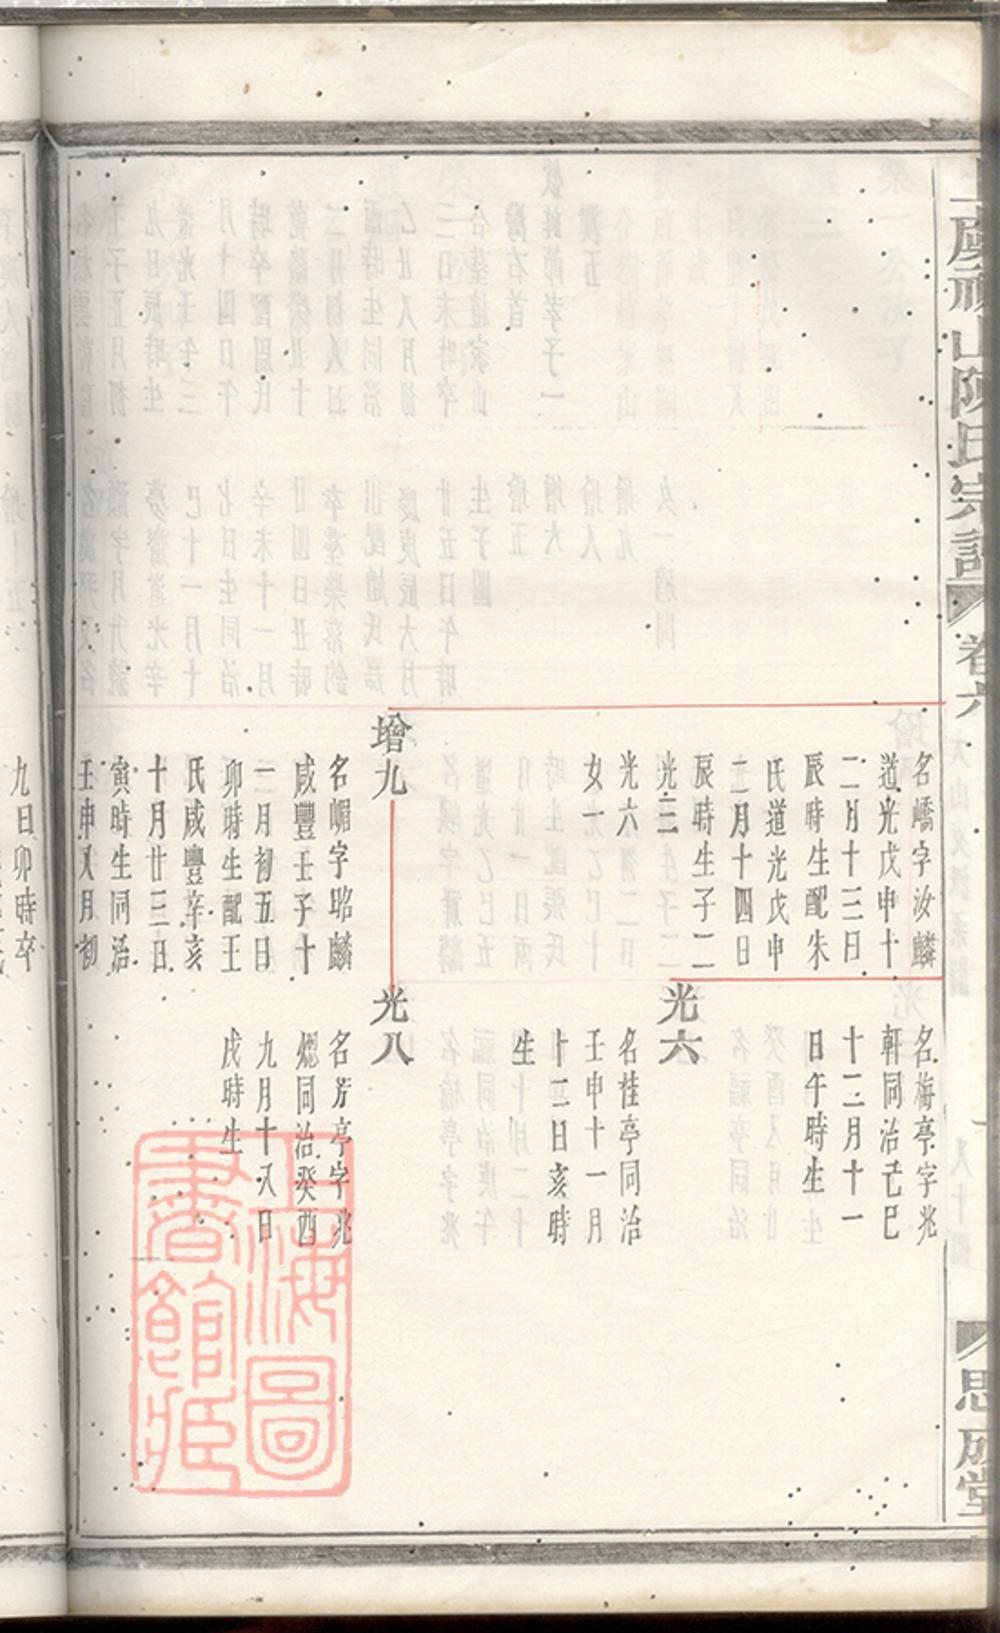 上虞祁山陳氏宗譜 卷六
思成堂
名嶠字汝麟
道光戊申十
二月十三日
辰時生配朱
氏道光戊申
二月十四日
辰時生子二
光三
光六
女一
名梅亭字兆
軒同治己巳
十二月十一
日午時生
光六
名桂亭同治
壬申十一月
十二日亥時
生
增九
名嵋字昭麟
咸豐壬子十
二月初五日
卯時生配王
氏咸豐辛亥
十月廿三日
寅時生同治
壬申八月初
光八
名芳亭字兆
同治癸酉
九月十八日
戌時生
九日卯時卒
上海圖
書館藏